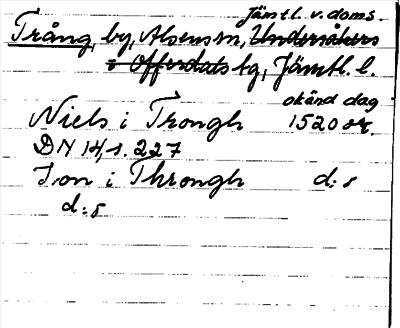 Jämtl. v. doms.
Trång, by, Alsens sn, Undersåkers
o Offerdals tg, Jämtl. l.
okänd dag
Niels i Trongh 1520 or.
DN 14,1. 227
Jon i Throngh d:s
d:s